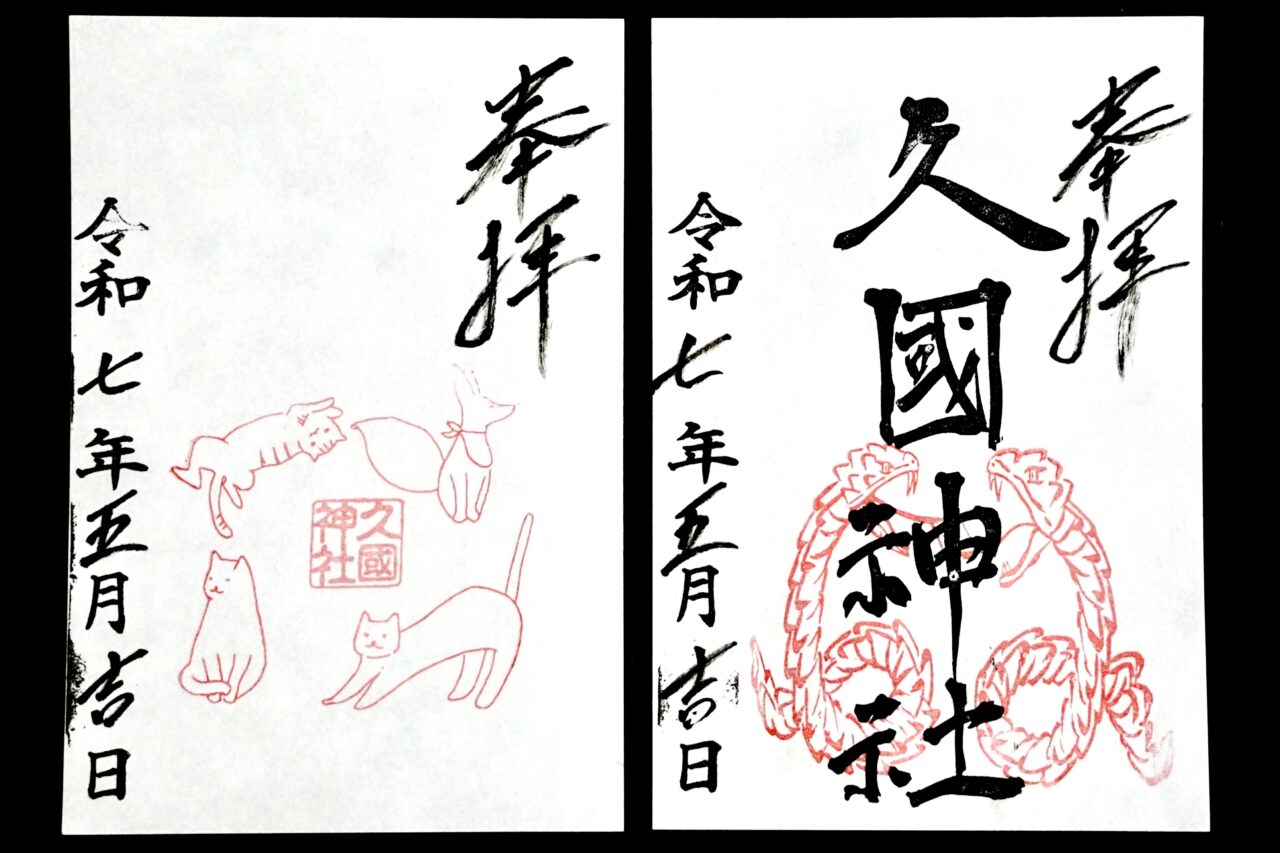 奉拝
久國神社
令和七年五月吉日
奉拝
久國神社
令和七年五月吉日